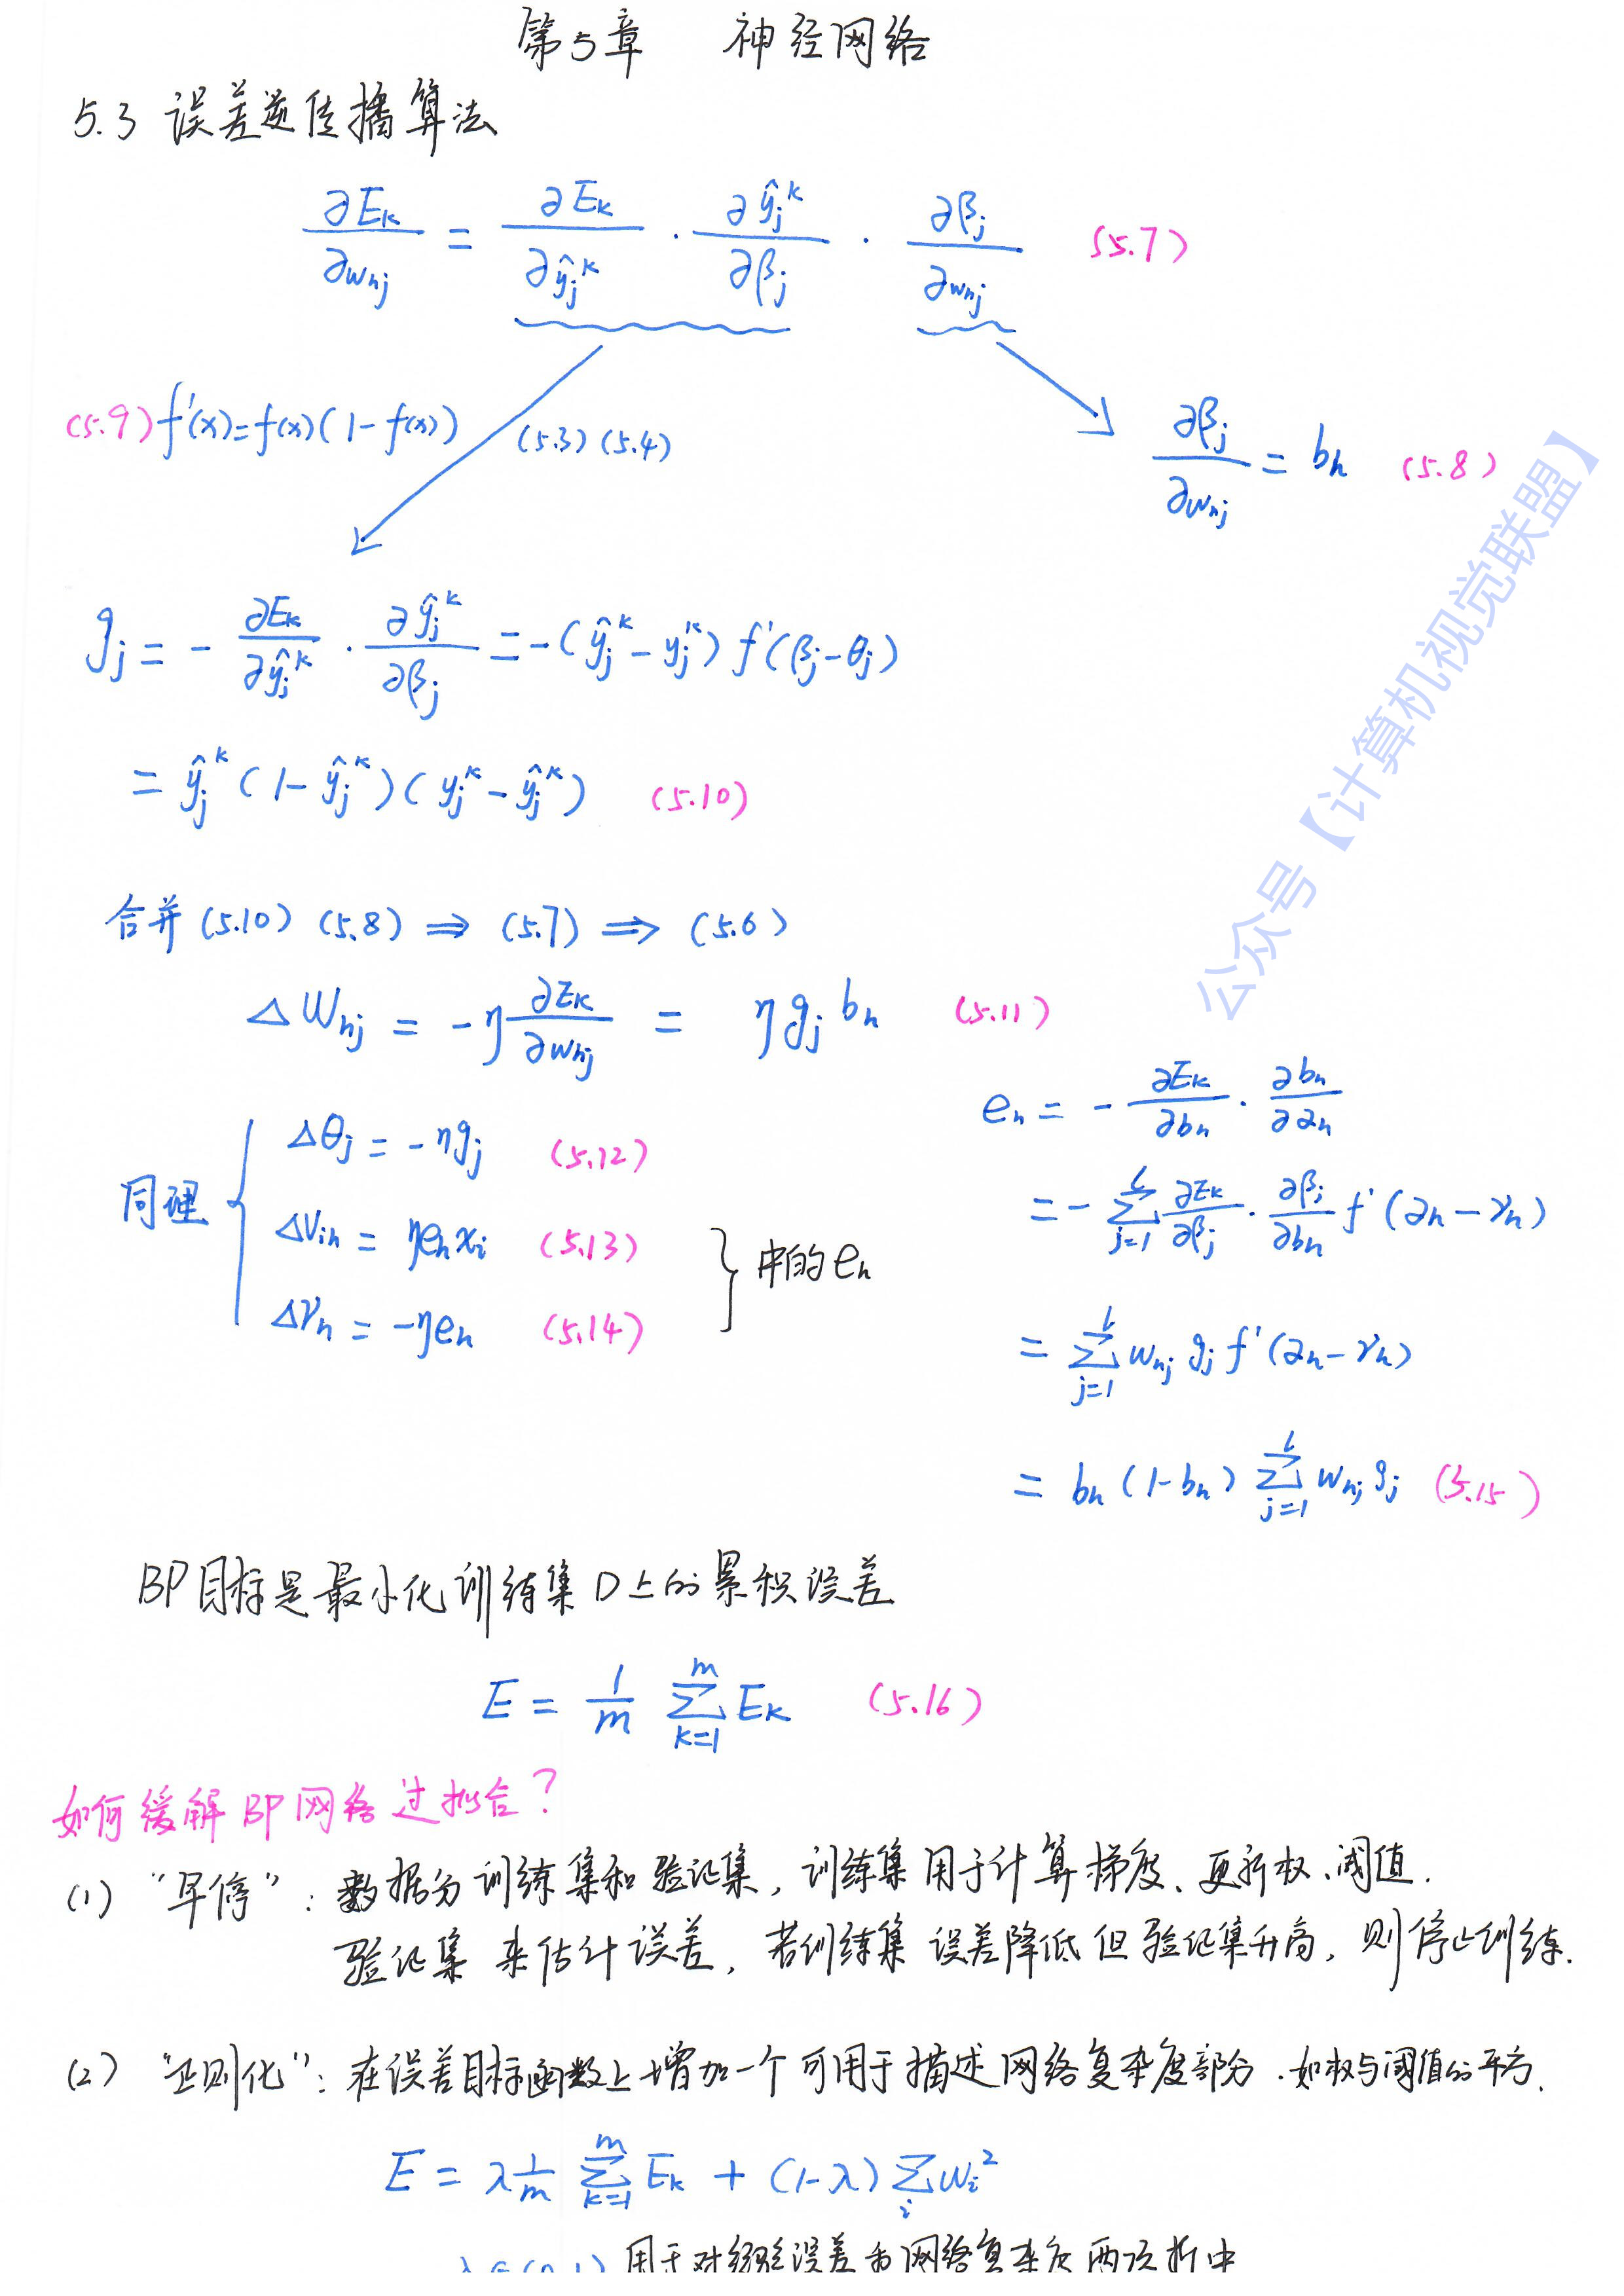 第5章 神经网络
5.3 误差逆传播算法
∂E_k/∂w_hj = ∂E_k/∂ŷ_j^k · ∂ŷ_j^k/∂β_j · ∂β_j/∂w_hj (5.7)
(5.9) f'(x)=f(x)(1-f(x)) (5.3) (5.4)
∂β_j/∂w_hj = b_h (5.8)
g_j = - ∂E_k/∂ŷ_j^k · ∂ŷ_j^k/∂β_j = -(ŷ_j^k - y_j^k) f'(β_j-θ_j)
= ŷ_j^k (1-ŷ_j^k)(y_j^k - ŷ_j^k) (5.10)
合并 (5.10) (5.8) ⇒ (5.7) ⇒ (5.6)
ΔW_hj = -η ∂E_k/∂w_hj = η g_j b_h (5.11)
同理
Δθ_j = -ηg_j (5.12)
ΔV_ih = ηe_h x_i (5.13)
Δγ_h = -ηe_h (5.14)
中的 e_h
e_h = - ∂E_k/∂b_h · ∂b_h/∂α_h
= - ∑_{j=1}^{l} ∂E_k/∂β_j · ∂β_j/∂b_h f'(α_h - γ_h)
= ∑_{j=1}^{l} w_hj g_j f'(α_h - γ_h)
= b_h (1-b_h) ∑_{j=1}^{l} w_hj g_j (5.15)
BP目标是最小化训练集D上的累积误差
E = 1/m ∑_{k=1}^{m} E_k (5.16)
如何缓解BP网络过拟合?
(1) "早停": 数据分训练集和验证集, 训练集用于计算梯度、更新权、阈值.
验证集来估计误差, 若训练集误差降低但验证集升高, 则停止训练.
(2) "正则化": 在误差目标函数上增加一个可用于描述网络复杂度部分. 如权与阈值的平方.
E = λ 1/m ∑_{k=1}^{m} E_k + (1-λ) ∑_i w_i^2
λ∈(0,1) 用于对经验误差和网络复杂度两项折中
公众号【计算机视觉联盟】